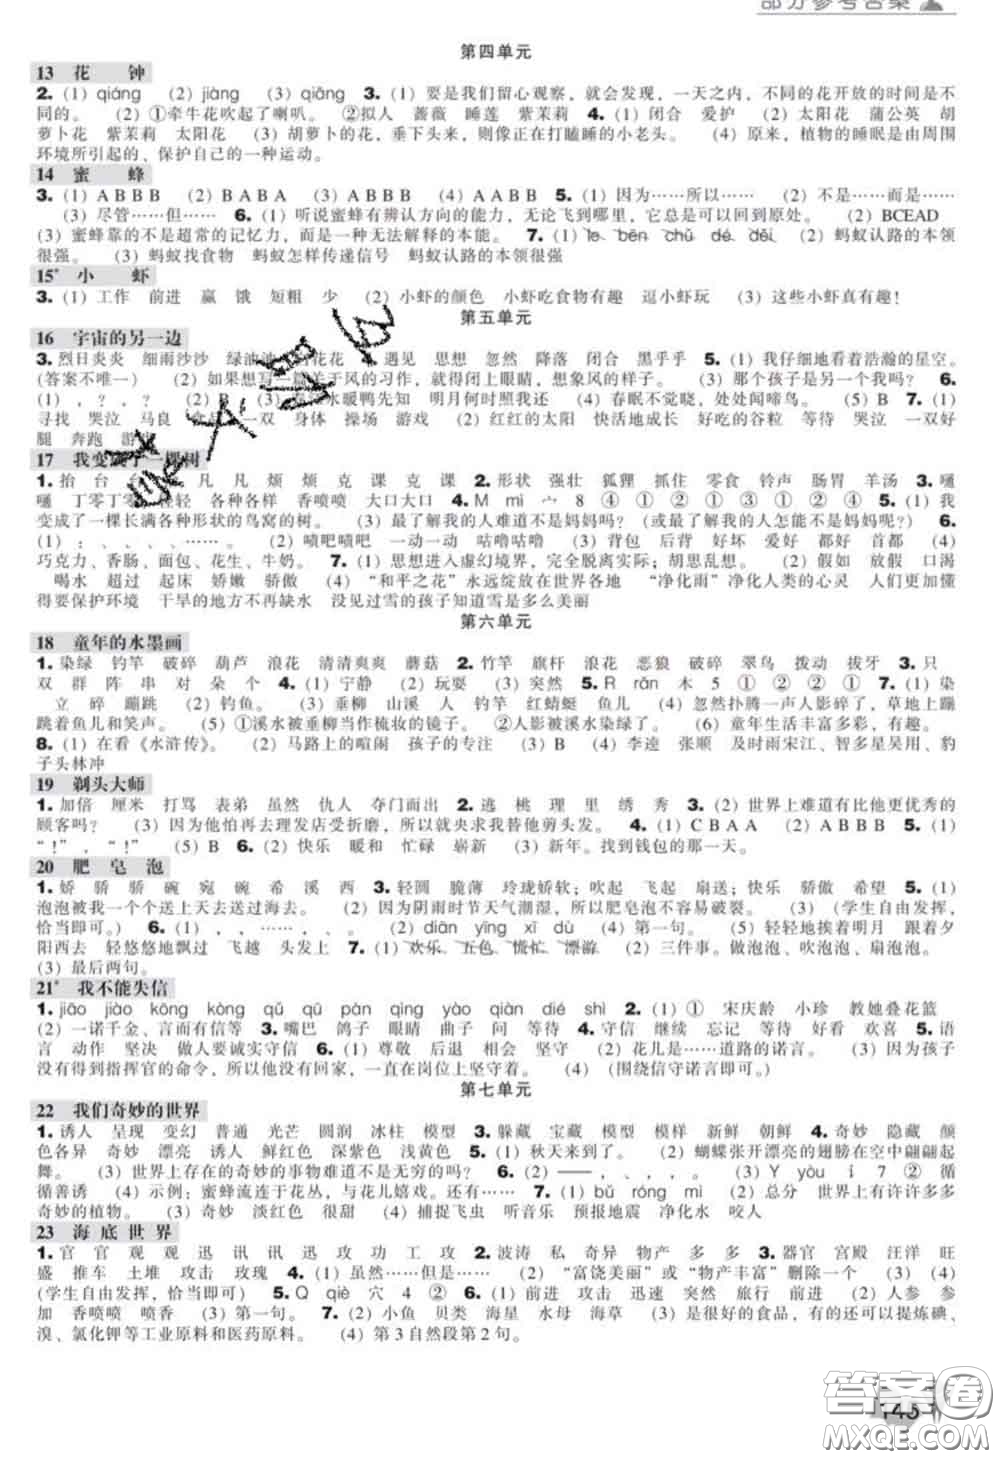 部分参考答案
第四单元
13 花 钟
2. (1) qiáng (2) jiàng (3) qiāng 3. (1) 要是我们留心观察，就会发现，一天之内，不同的花开放的时间是不
同的。 (2) ①牵牛花吹起了喇叭。 ②拟人 蔷薇 睡莲 紫茉莉 4. (1) 闭合 爱护 (2) 太阳花 蒲公英 胡
萝卜花 紫茉莉 太阳花 (3) 胡萝卜的花，垂下头来，则像正在打瞌睡的小老头。 (4) 原来，植物的睡眠是由周围
环境所引起的、保护自己的一种运动。
14 蜜 蜂
3. (1) A B B B (2) B A B A (3) A B B B (4) A A B B 5. (1) 因为……所以…… (2) 不是……而是……
(3) 尽管……但…… 6. (1) 听说蜜蜂有辨认方向的能力，无论飞到哪里，它总是可以回到原处。 (2) BCEAD
(3) 蜜蜂靠的不是超常的记忆力，而是一种无法解释的本能。 7. (1) le bēn chǔ dé děi (2) 蚂蚁认路的本领
很强。 (3) 蚂蚁找食物 蚂蚁怎样传递信号 蚂蚁认路的本领很强
15* 小 虾
3. (1) 工作 前进 赢 饿 短粗 少 (2) 小虾的颜色 小虾吃食物有趣 逗小虾玩 (3) 这些小虾真有趣！
第五单元
16 宇宙的另一边
3. 烈日炎炎 细雨沙沙 绿油油 花花 4. 遇见 思想 忽然 降落 闭合 黑乎乎 5. (1) 我仔细地看着浩瀚的星空。
(答案不唯一) (2) 如果想写一篇关于风的习作，就得闭上眼睛，想象风的样子。 (3) 那个孩子是另一个我吗？ 6.
(1) ， ？ ， ？ (2) B (3) 春江水暖鸭先知 明月何时照我还 (4) 春眠不觉晓，处处闻啼鸟。 (5) B 7. (1)
寻找 哭泣 马良 食品 一双 身体 操场 游戏 (2) 红红的太阳 快活地成长 好吃的谷粒 等待 哭泣 一双好
腿 奔跑 游戏
17 我变成了一棵树
1. 抬 台 台 凡 凡 烦 烦 克 课 克 课 2. 形状 强壮 狐狸 抓住 零食 铃声 肠胃 羊汤 3. 嗵
嗵 丁零丁零 轻轻 各种各样 香喷喷 大口大口 4. M mì 宀 8 ④ ① ② ① ③ ① ② ④ 5. (1) 我
变成了一棵长满各种形状的鸟窝的树。 (3) 最了解我的人难道不是妈妈吗？ (或最了解我的人怎能不是妈妈呢？) 6.
(1) ： 、 、 、 、 …… 。 (2) 啧吧啧吧 一动一动 咕噜咕噜 (3) 背包 后背 好坏 爱好 都好 首都 (4)
巧克力、香肠、面包、花生、牛奶。 7. (1) 思想进入虚幻境界，完全脱离实际；胡思乱想。 (2) 假如 放假 口渴
喝水 超过 起床 娇嫩 骄傲 (4) “和平之花”永远绽放在世界各地 “净化雨”净化人类的心灵 人们更加懂
得要保护环境 干旱的地方不再缺水 没见过雪的孩子知道雪是多么美丽
第六单元
18 童年的水墨画
1. 染绿 钓竿 破碎 葫芦 浪花 清清爽爽 蘑菇 2. 竹竿 旗杆 浪花 恶狼 破碎 翠鸟 拨动 拔牙 3. 只
双 群 阵 串 对 朵 个 4. (1) 宁静 (2) 玩耍 (3) 突然 5. R rǎn 木 5 ① ② ② ① 7. (1) 染
立 碎 蹦跳 (2) 钓鱼。 (3) 垂柳 山溪 人 钓竿 红蜻蜓 鱼儿 (4) 忽然扑腾一声人影碎了，草地上蹦
跳着鱼儿和笑声。 (5) ①溪水被垂柳当作梳妆的镜子。 ②人影被溪水染绿了。 (6) 童年生活丰富多彩，有趣。
8. (1) 在看《水浒传》。 (2) 马路上的喧闹 孩子的专注 (3) B (4) 李逵 张顺 及时雨宋江、智多星吴用、豹
子头林冲
19 剃头大师
1. 加倍 厘米 打骂 表弟 虽然 仇人 夺门而出 2. 逃 桃 理 里 绣 秀 3. (2) 世界上难道有比他更优秀的
顾客吗？ (3) 因为他怕再去理发店受折磨，所以就央求我替他剪头发。 4. (1) C B A A (2) A B B B 5. (1)
“！”，“！” (5) B 6. (2) 快乐 暖和 忙碌 崭新 (3) 新年。找到钱包的那一天。
20 肥 皂 泡
1. 娇 骄 骄 碗 宛 碗 希 溪 西 3. 轻圆 脆薄 玲珑娇软；吹起 飞起 扇送；快乐 骄傲 希望 5. (1)
泡泡被我一个个送上天去送过海去。 (2) 因为阴雨时节天气潮湿，所以肥皂泡不容易破裂。 (3) (学生自由发挥，
恰当即可。) 6. (1) ， ， …… ， 、 。 (2) diān yǐng xī dù (4) 第一句。 (5) 轻轻地挨着明月 跟着夕
阳西去 轻悠悠地飘过 飞越 头发上 7. (1) 欢乐 五色 慌忙 漂游 (2) 三件事。做泡泡、吹泡泡、扇泡泡。
(3) 最后两句。
21* 我不能失信
1. jiāo jiào kōng kòng qǔ qū pàn qìng yào qiàn dié shì 2. (1) ① 宋庆龄 小珍 教她叠花篮
(2) 一诺千金、言而有信等 3. 嘴巴 鸽子 眼睛 曲子 问 等待 4. 守信 继续 忘记 等待 好看 欢喜 5. 语
言 动作 坚决 做人要诚实守信 6. (1) 尊敬 后退 相会 坚守 (2) 花儿是……道路的诺言。 (3) 因为孩子
没有得到指挥官的命令，所以他没有回家，一直在岗位上坚守着。 (4) (围绕信守诺言即可。)
第七单元
22 我们奇妙的世界
1. 诱人 呈现 变幻 普通 光芒 圆润 冰柱 模型 3. 躲藏 宝藏 模型 模样 新鲜 朝鲜 4. 奇妙 隐藏 颜
色各异 奇妙 漂亮 诱人 鲜红色 深紫色 浅黄色 5. (1) 秋天来到了。 (2) 蝴蝶张开漂亮的翅膀在空中翩翩起
舞。 (3) 世界上存在的奇妙的事物难道不是无穷的吗？ 6. (2) —— ， ， 、 。 (3) Y yòu 讠 7 ② 循
循善诱 (4) 示例：蜜蜂流连于花丛，与花儿嬉戏。还有…… 7. (1) bǔ róng mì (2) 总分 世界上有许许多多
奇妙的植物。 (3) 奇妙 淡红色 很甜 (4) 捕捉飞虫 听音乐 预报地震 净化水 咬人
23 海 底 世 界
1. 官 官 观 观 迅 讯 讯 迅 攻 功 工 攻 2. 波涛 私 奇异 物产 多 多 3. 器官 宫殿 汪洋 旺
盛 推车 土堆 攻击 玫瑰 4. (1) 虽然……但是…… (2) “富饶美丽”或“物产丰富”删除一个 (3) (4)
(学生自由发挥，恰当即可) 5. Q qiè 穴 4 ② 6. (1) 前进 攻击 迅速 突然 旅行 前进 (2) 人参 参
加 香喷喷 喷香 (3) 第一句。 7. (2) 小鱼 贝类 海星 水母 海草 (3) 是很好的食品，有的还可以提炼碘、
溴、氯化钾等工业原料和医药原料。 (4) 第 3 自然段第 2 句。
答案圈
145
MXQE.COM